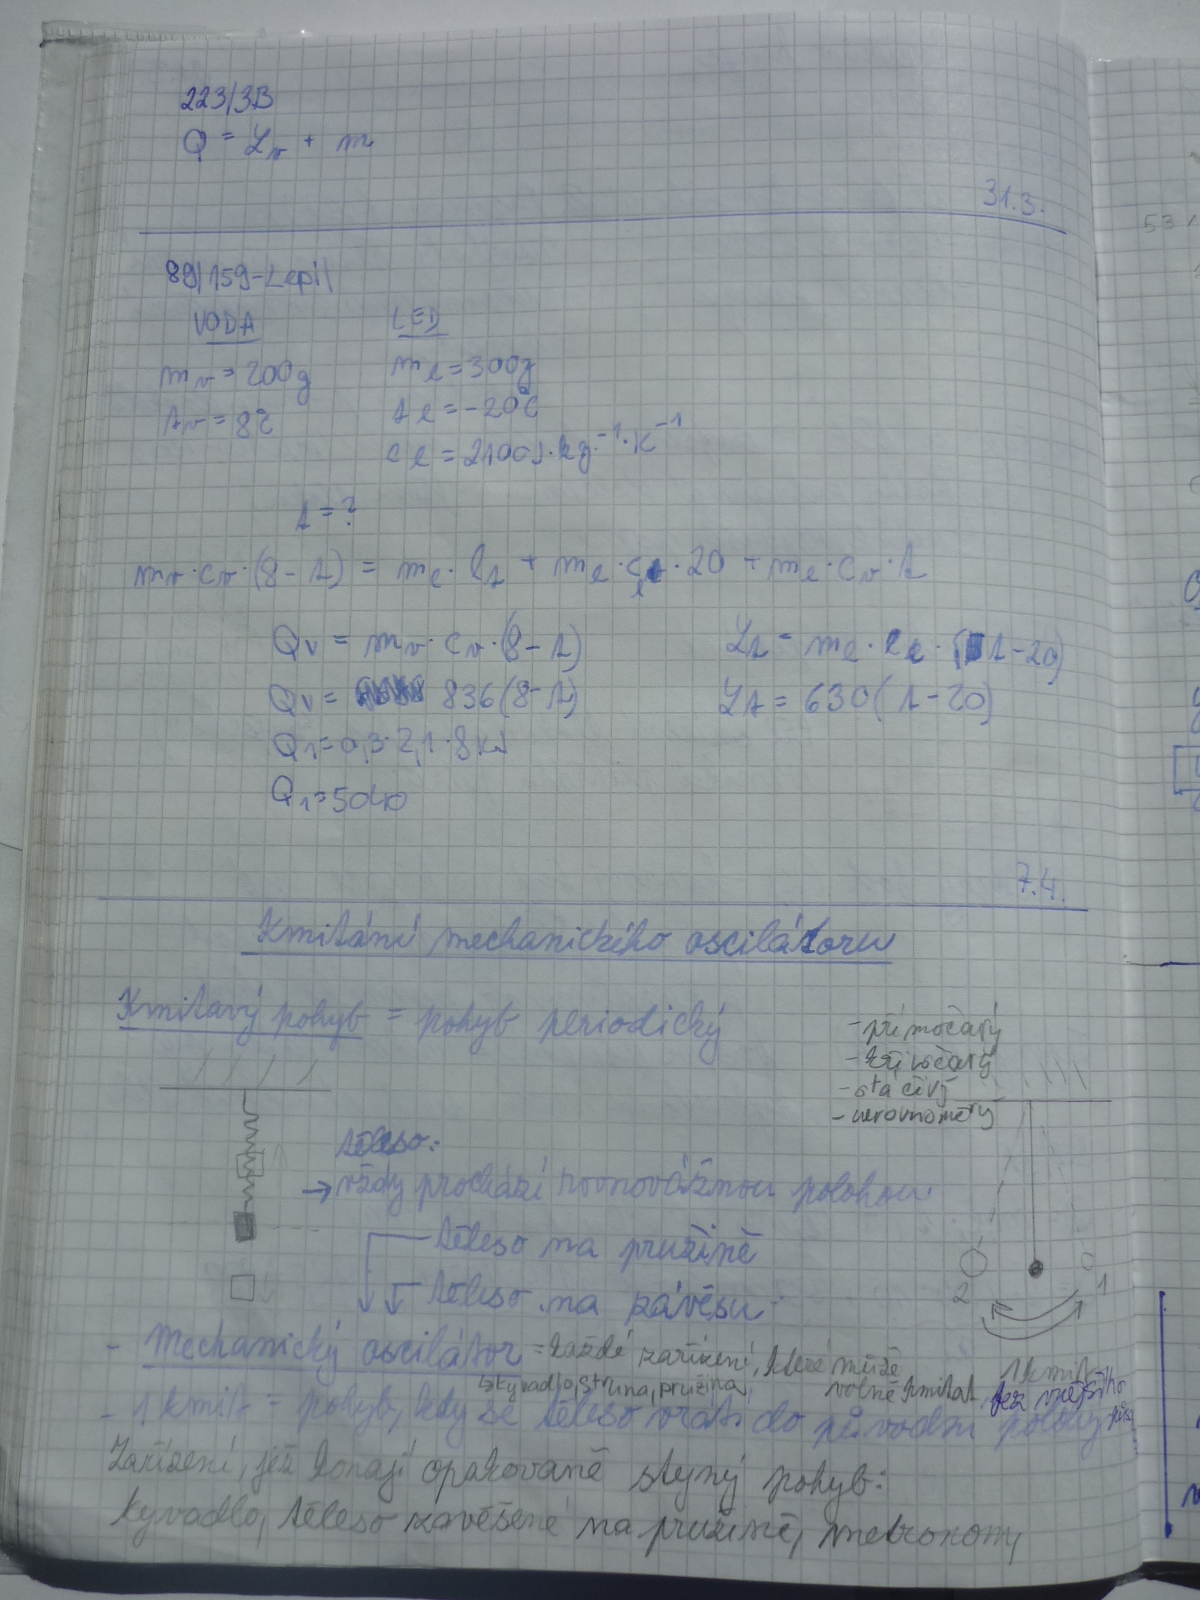 223/3B
Q = Lv + m
31.3.
89/159-Lepil
VODA LED
mv = 200g ml = 300g
tv = 8°C tl = -20°C
cl = 2100J·kg⁻¹·K⁻¹
t = ?
mv·cv·(8-t) = ml·lt + ml·cl·20 + ml·cv·t
Qv = mv·cv·(8-t) Lt = ml·cl·(t-20)
Qv = 836(8-t) Lt = 630(t-20)
Q1 = 0,3·2,1·8kJ
Q1 = 5040
7.4.
Kmitání mechanického oscilátoru
Kmitavý pohyb = pohyb periodický
- přímočarý
- křivočarý
- otáčivý
- nerovnoměrný
těleso:
→ vždy prochází rovnovážnou polohou
těleso na pružině
těleso na závěsu
2 1
- Mechanický oscilátor = každé zařízení, které může
volně kmitat
↳ kyvadlo, struna, pružina,
1 kmit
bez vnějšího
- 1 kmit = pohyb, kdy se těleso vrátí do původní polohy
Zařízení, jež konají opakovaně stejný pohyb:
kyvadlo, těleso zavěšené na pružině, metronomy